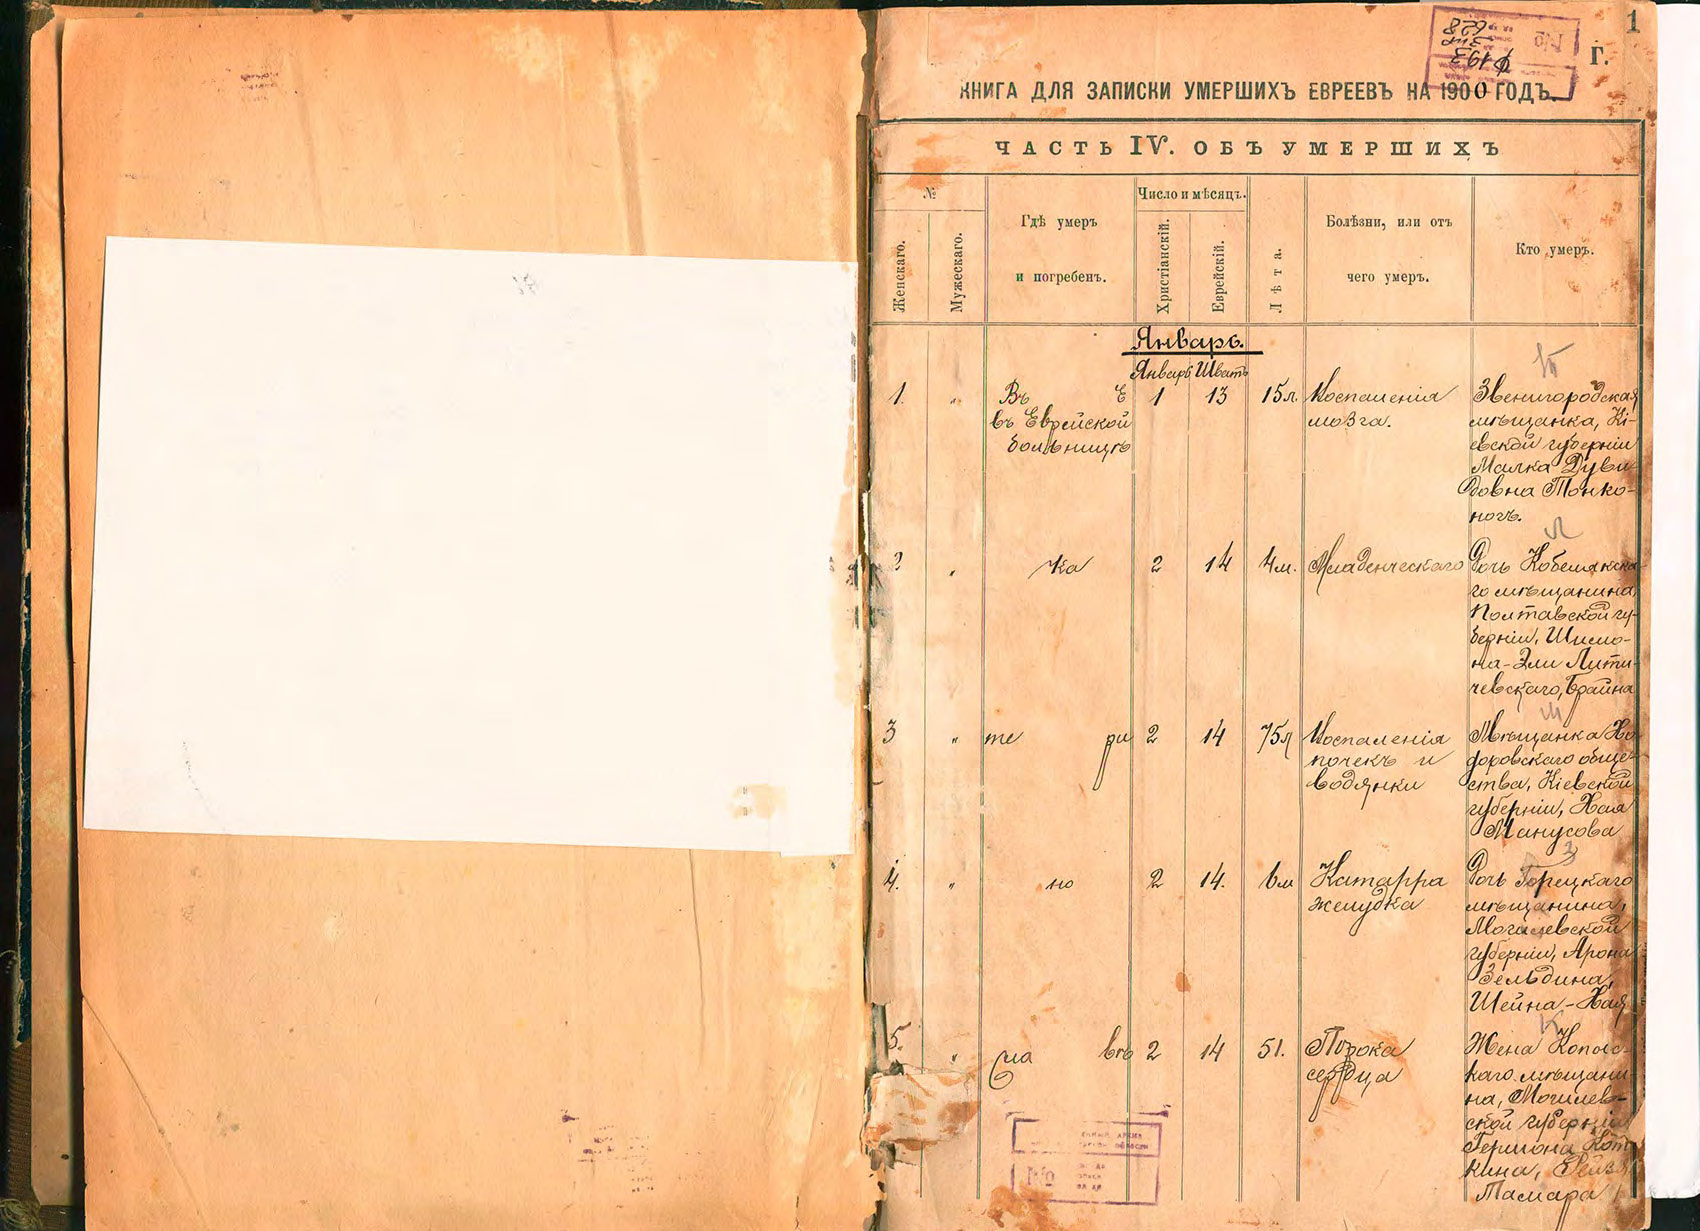 1
Г.
КНИГА ДЛЯ ЗАПИСКИ УМЕРШИХЪ ЕВРЕЕВЪ НА 1900 ГОДЪ.
ЧАСТЬ IV. ОБЪ УМЕРШИХЪ
№
Женскаго.
Мужескаго.
Гдѣ умеръ
и погребенъ.
Число и мѣсяцъ.
Христіанскій.
Еврейскій.
Лѣта.
Болѣзни, или отъ
чего умеръ.
Кто умеръ.
Январь.
Январь Шватъ
1. " Въ Е 1 13 15л. Воспаленія Звенигородская
въ Еврейской мозга. мѣщанка, Кі-
больницѣ евской губерніи
Малка Дуви-
довна Тонко-
ногъ.
2 " ка 2 14 4м. Младенческаго Дочь Кобелякска-
го мѣщанина,
Полтавской гу-
берніи, Шимо-
на-Эли Литы-
чевскаго, Брайна
3 " те ри 2 14 75л Воспаленія Мѣщанка Хо-
почекъ и доровскаго обще-
водянки ства, Кіевской
губерніи, Хая
Манусова
4. " но 2 14. 6м Катарра Дочь Горецкаго
желудка мѣщанина,
Могилевской
губерніи, Арона
Зельдина,
Шейна-Хая
5. " ма въ 2 14 51. Порока Жена Копыс-
сердца каго мѣщани-
на, Могилев-
ской губерніи
Гершона Кот-
кина,
Тамара
№